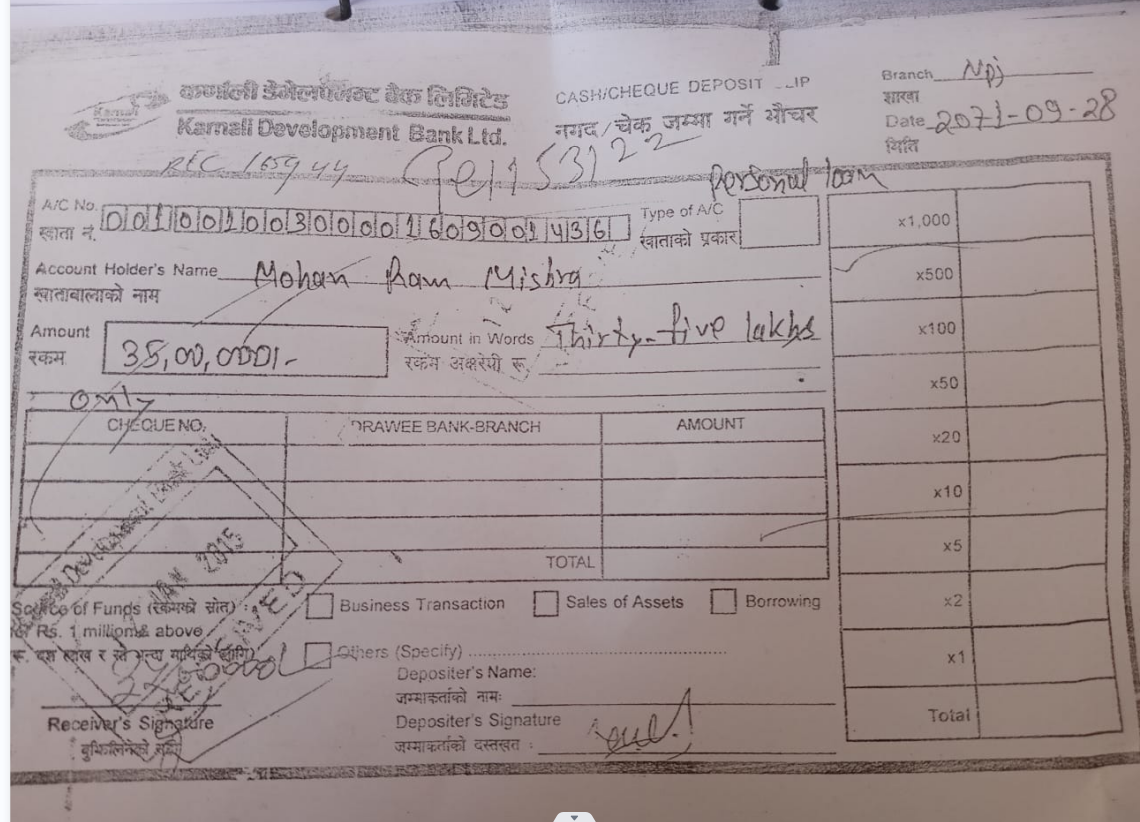 कर्णाली डेभेलपमेण्ट बैंक लिमिटेड
Karnali Development Bank Ltd.
CASH/CHEQUE DEPOSIT IP
नगद/चेक जम्मा गर्ने भौचर
Branch Npj
शाखा
Date 2071-09-28
मिति
REC 165944
53122
Personal loan
A/C No.
खाता नं.
Type of A/C
खाताको प्रकार
Account Holder's Name Mohan Ram Mishra
खातावालाको नाम
Amount 35,00,000/-
रकम
Amount in Words Thirty-five lakhs
रकम अक्षरेपी रू.
only
CHEQUE NO.
DRAWEE BANK-BRANCH
AMOUNT
TOTAL
x1,000
x500
x100
x50
x20
x10
x5
x2
x1
Total
Development Bank Ltd.
JAN 2015
RECEIVED
Source of Funds (रकमको स्रोत) :
Business Transaction
Sales of Assets
Borrowing
for Rs. 1 million & above
रू. दश लाख र सो भन्दा माथिको लागि)
Others (Specify)
Depositer's Name:
जम्माकर्ताको नामः
Receiver's Signature
बुझिलिनेको सही
Depositer's Signature
जम्माकर्ताको दस्तखत :